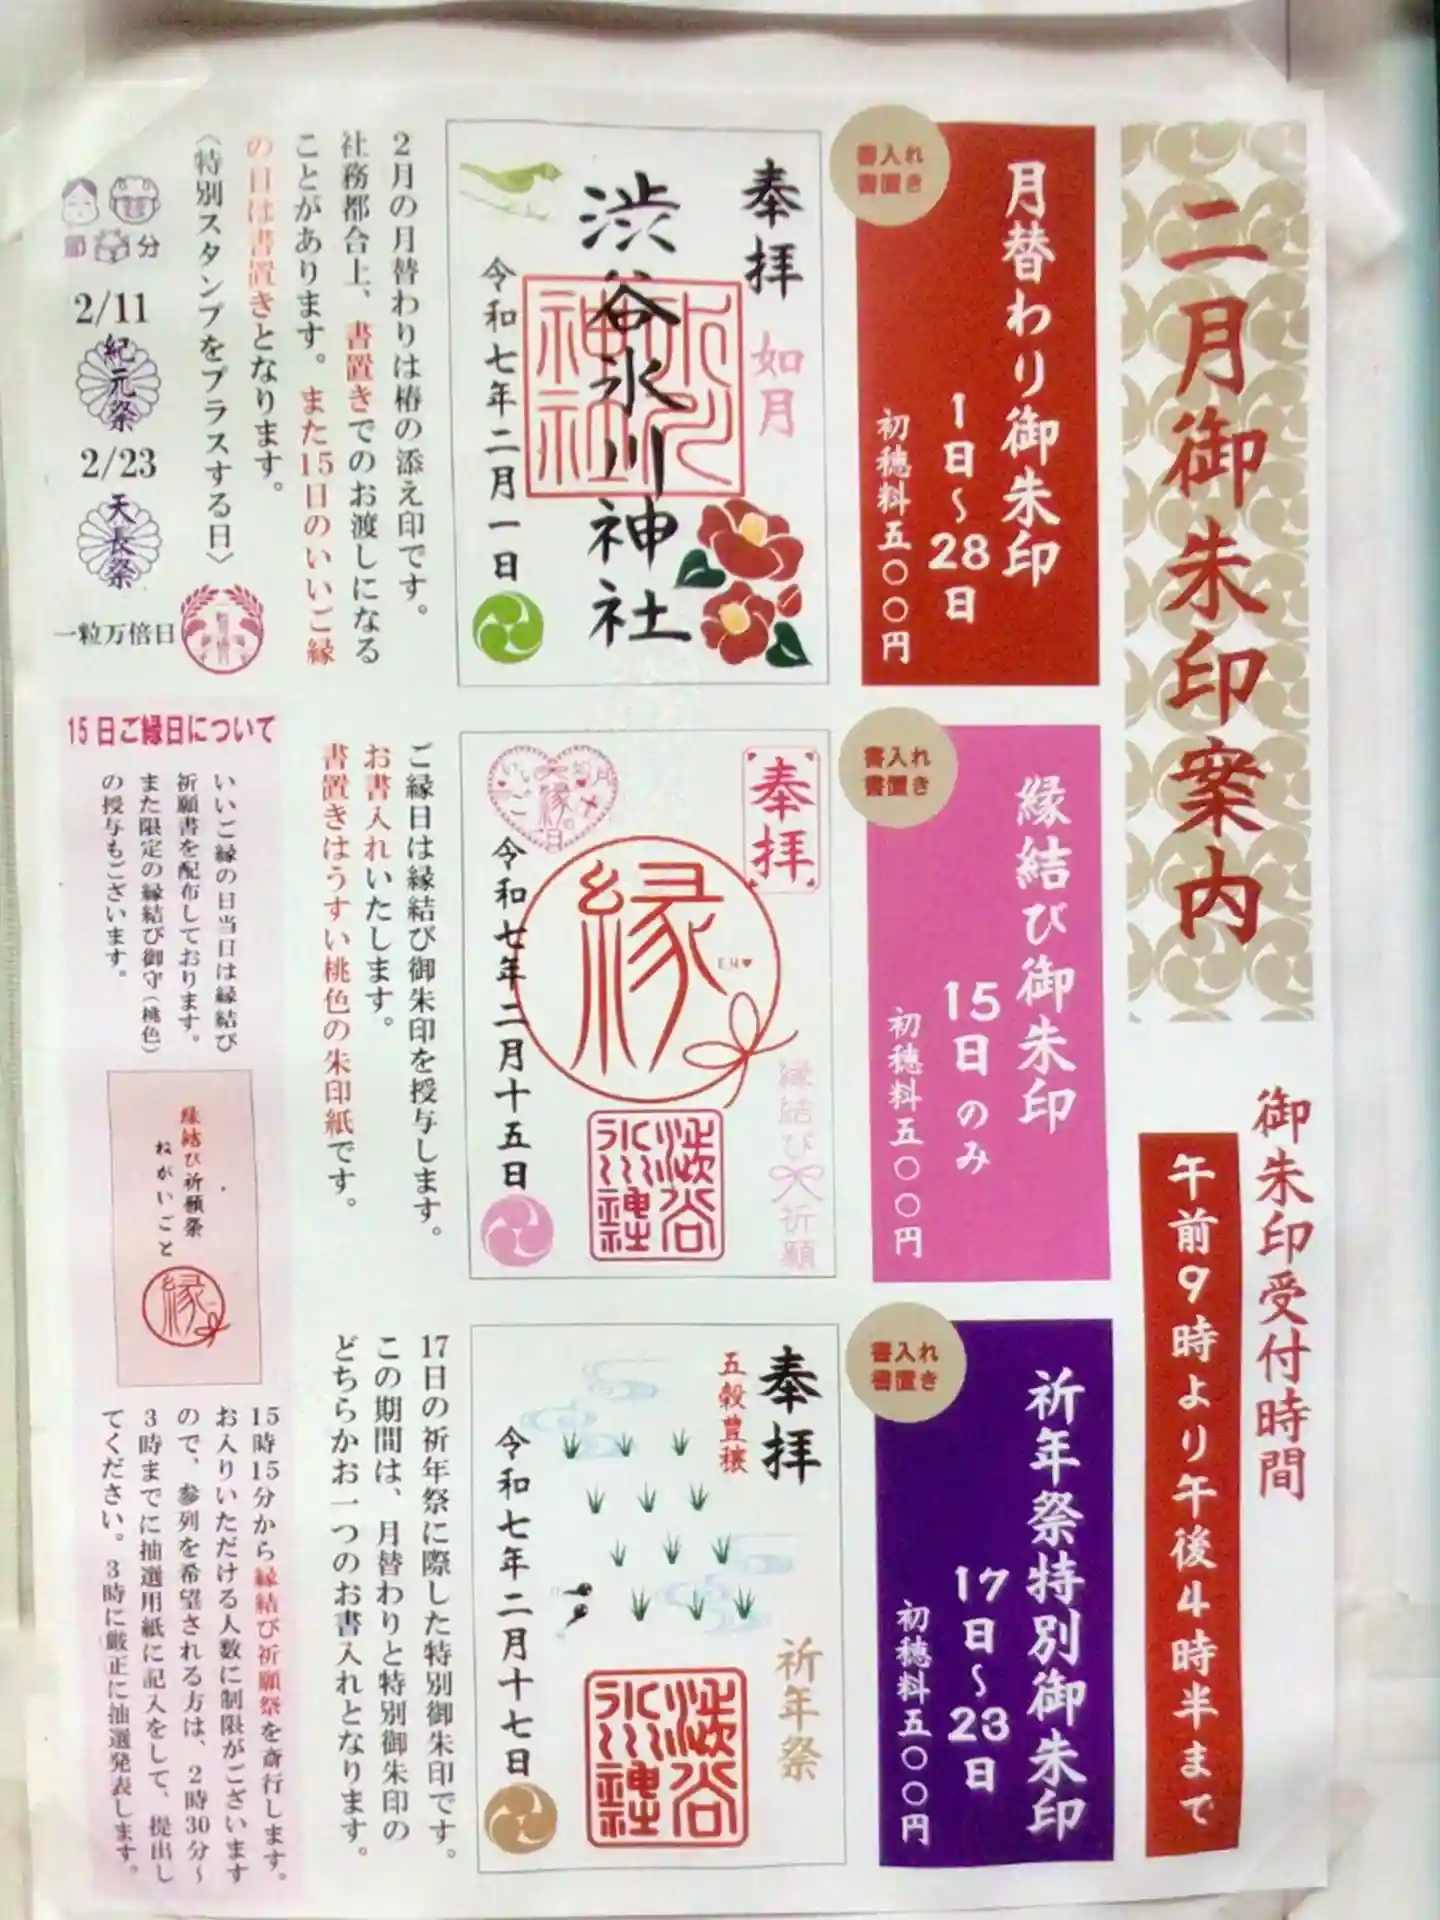 二月御朱印案内
御朱印受付時間
午前9時より午後4時半まで
月替わり御朱印
1日〜28日
初穂料五〇〇円
書入れ
書置き
奉拝
如月
渋谷氷川神社
令和七年二月一日
2月の月替わりは椿の添え印です。
社務都合上、書置きでのお渡しになる
ことがあります。また15日のいいご縁
の日は書置きとなります。
〈特別スタンプをプラスする日〉
節分
2/11
紀元祭
2/23
天長祭
一粒万倍日
縁結び御朱印
15日のみ
初穂料五〇〇円
書入れ
書置き
奉拝
縁
EN♥
縁結び祈願
渋谷氷川神社
令和七年二月十五日
ご縁日は縁結び御朱印を授与します。
お書入れいたします。
書置きはうすい桃色の朱印紙です。
祈年祭特別御朱印
17日〜23日
初穂料五〇〇円
書入れ
書置き
奉拝
五穀豊穣
祈年祭
渋谷氷川神社
令和七年二月十七日
17日の祈年祭に際した特別御朱印です。
この期間は、月替わりと特別御朱印の
どちらかお一つのお書入れとなります。
15日ご縁日について
いいご縁の日当日は縁結び
祈願書を配布しております。
また限定の縁結び御守（桃色）
の授与もございます。
縁結び祈願祭
ねがいごと
縁
15時15分から縁結び祈願祭を斎行します。
お入りいただける人数に制限がございます
ので、参列を希望される方は、2時30分〜
3時までに抽選用紙に記入をして、提出し
てください。3時に厳正に抽選発表します。